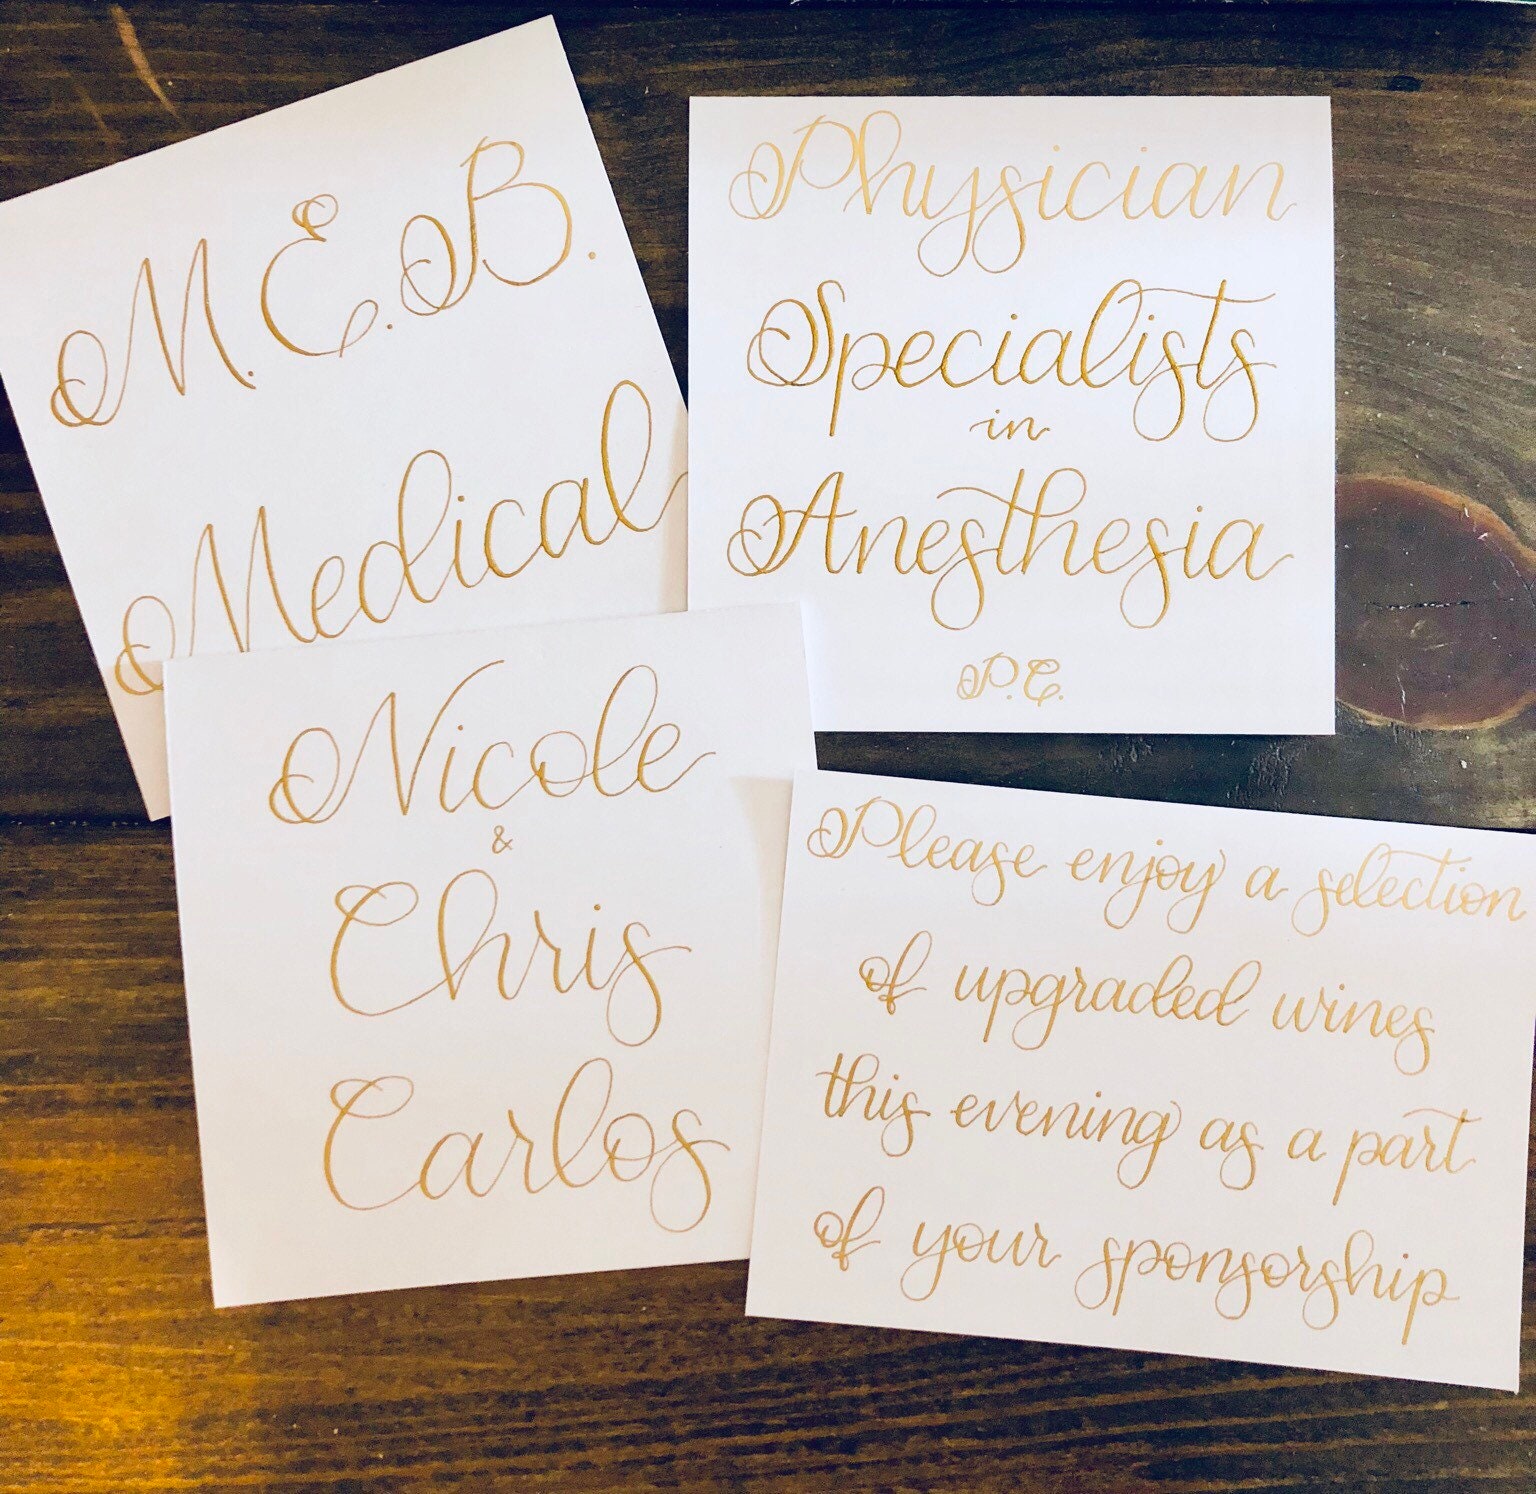 M.E.B.
Medical
Physician
Specialists
in
Anesthesia
P.C.
Nicole
&
Chris
Carlos
Please enjoy a selection
of upgraded wines
this evening as a part
of your sponsorship